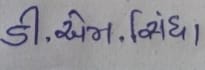 ડી. એમ. સિંઘા